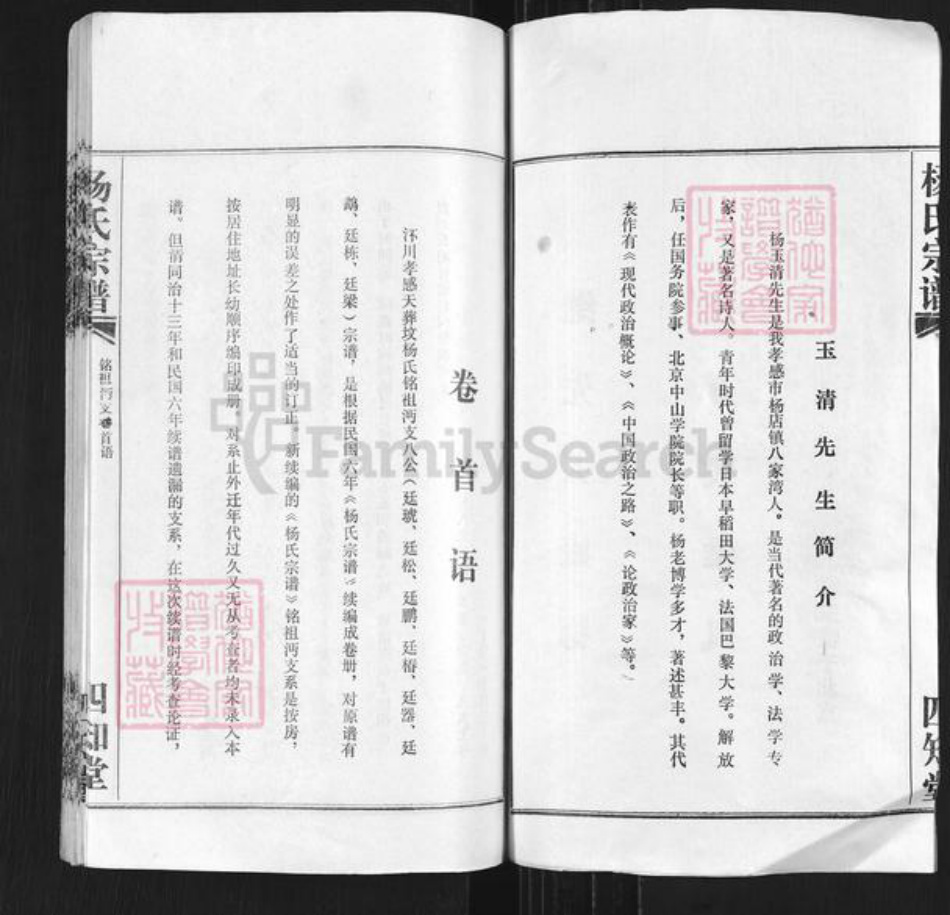 杨氏宗谱
四知堂
玉清先生简介
杨玉清先生是我孝感市杨店镇八家湾人。是当代著名的政治学、法学专
家，又是著名诗人。青年时代曾留学日本早稻田大学、法国巴黎大学。解放
后，任国务院参事、北京中山学院院长等职。杨老博学多才，著述甚丰。其代
表作有《现代政治概论》、《中国政治之路》、《论政治家》等。
卷首语
环川孝感天葬坟杨氏铭祖沔支八公（廷琥、廷松、廷鹏、廷椿、廷器、廷
鹉、廷栋、廷梁）宗谱，是根据民国六年《杨氏宗谱》续编成卷册，对原谱有
明显的误差之处作了适当的订正。新续编的《杨氏宗谱》铭祖沔支系是按房，
按居住地址长幼顺序编印成册。对系止外迁年代过久又无从考查者均未录入本
谱。但清同治十三年和民国六年续谱遗漏的支系，在这次续谱时经考查论证，
杨氏宗谱
铭祖沔支 首语
四知堂
FamilySearch